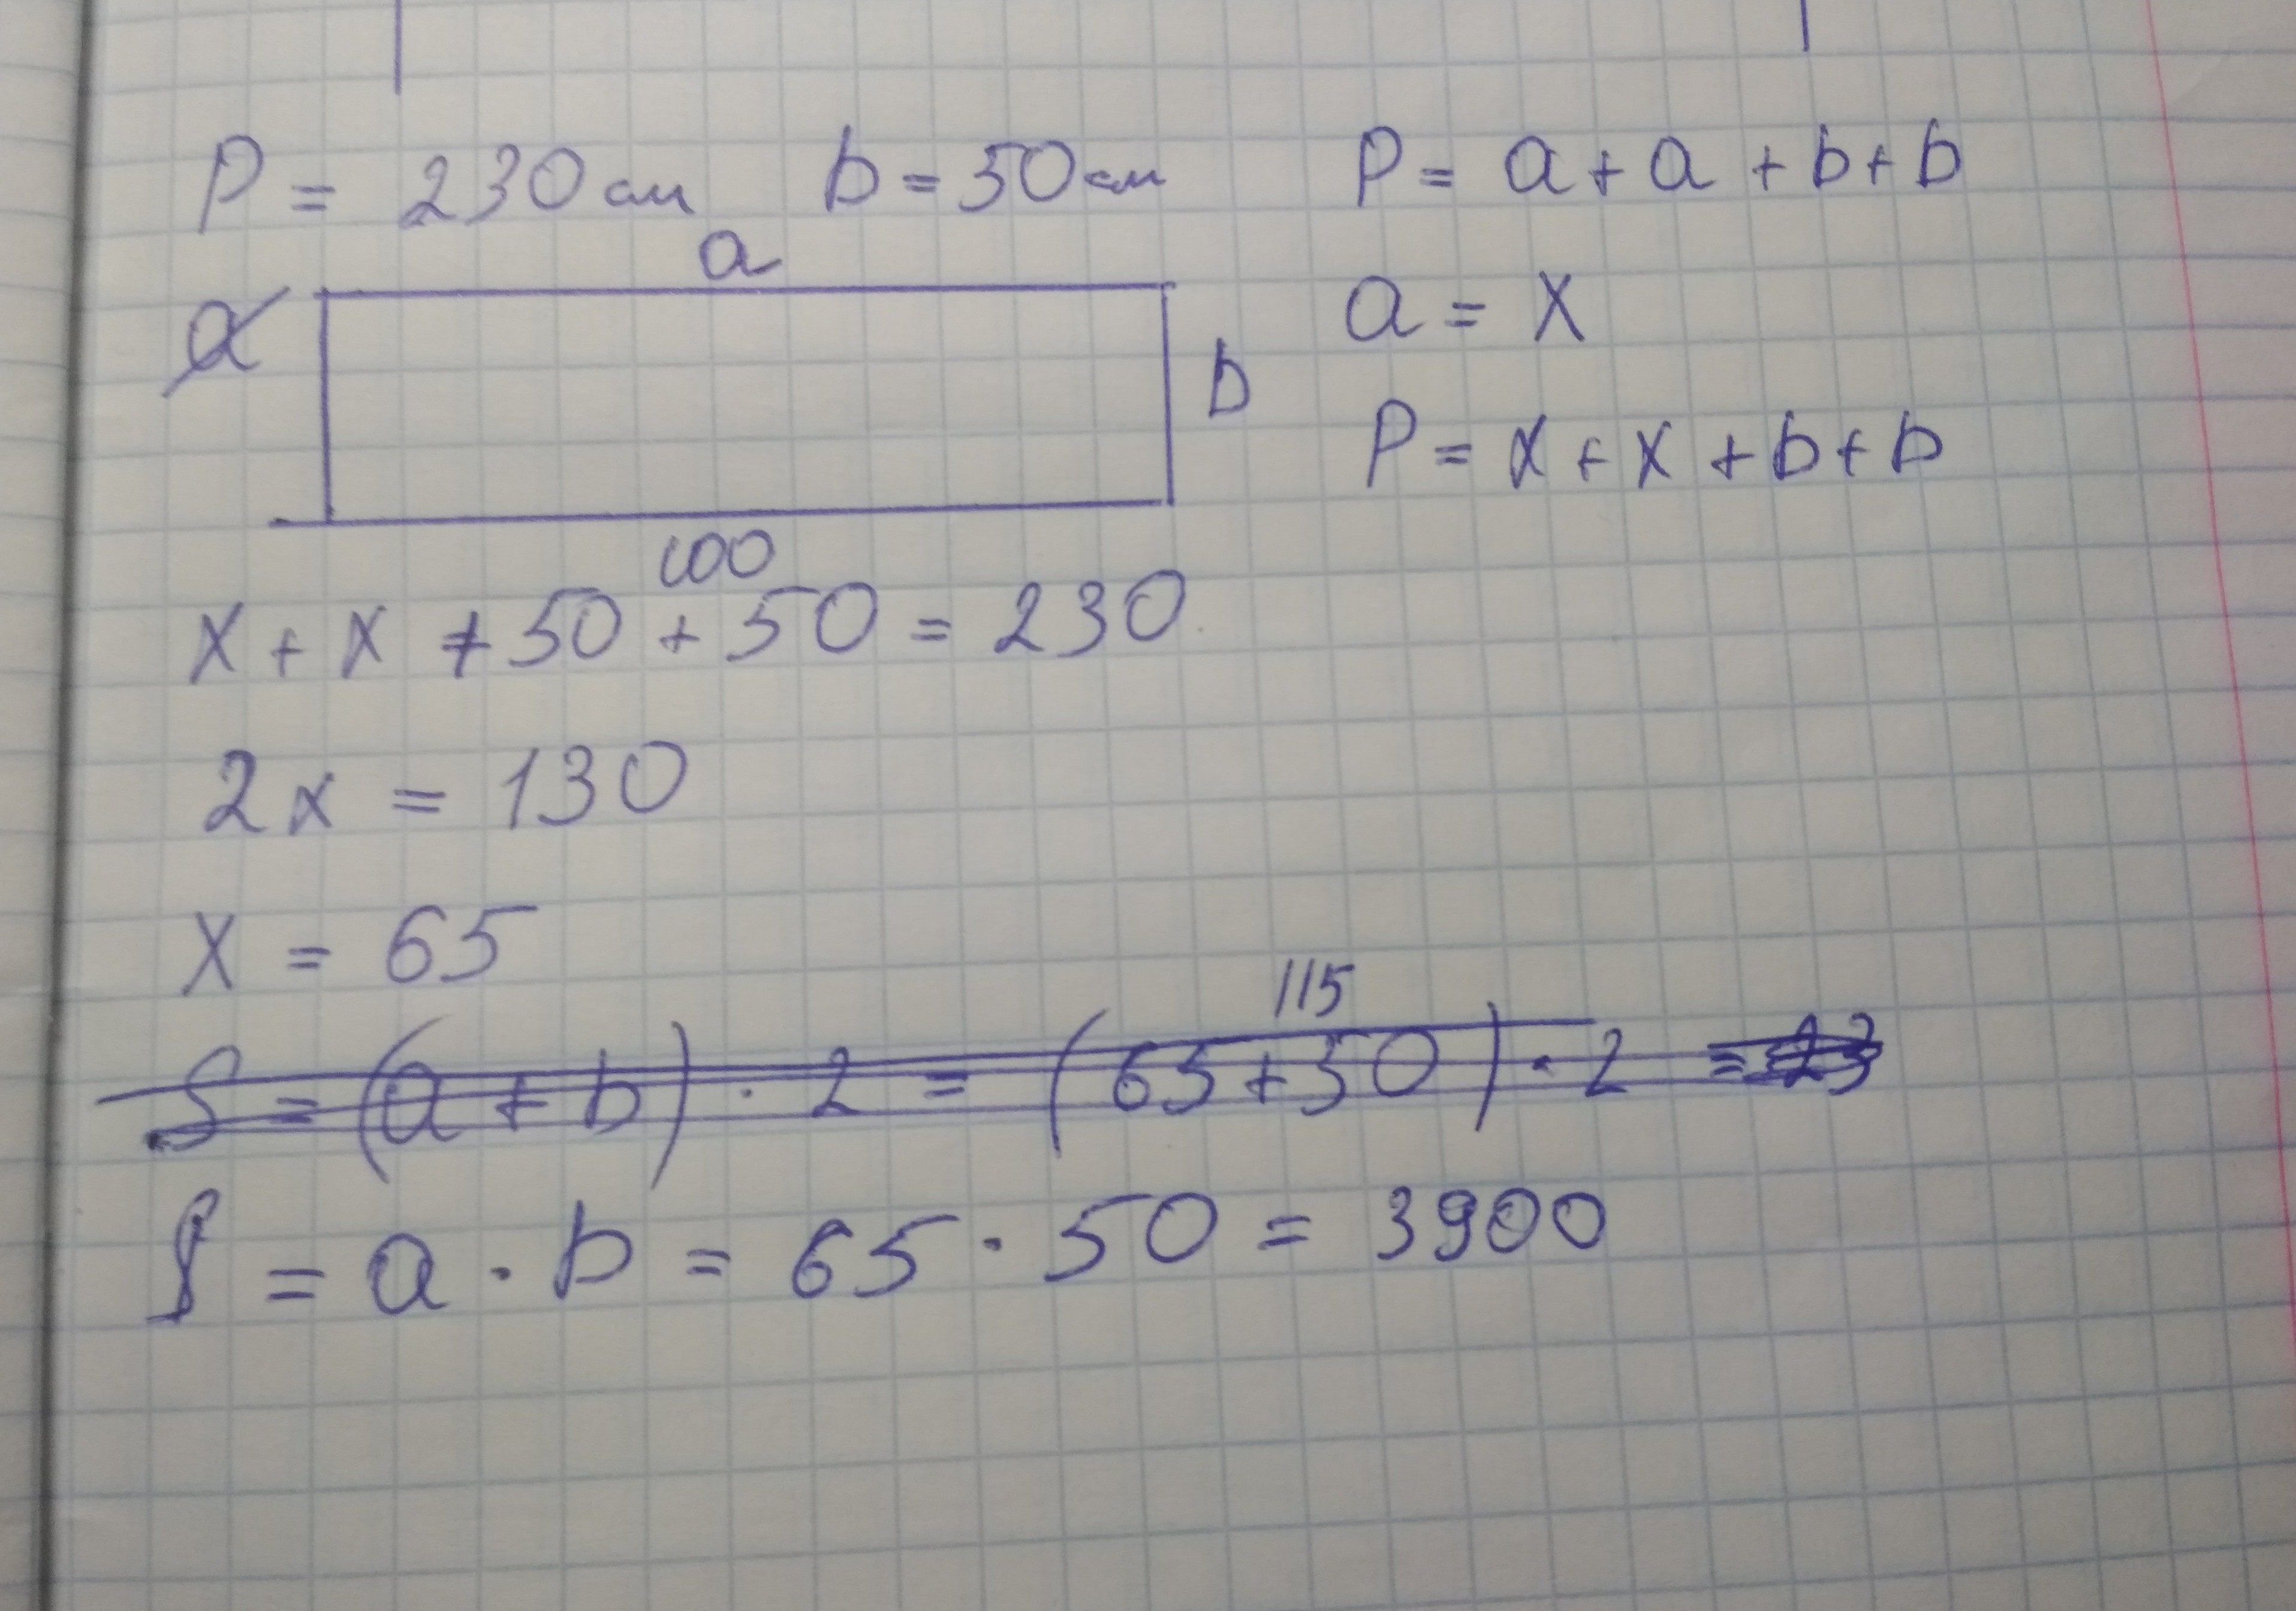 P = 230 см b = 50 см P = a + a + b + b
a
a a = x
b
P = x + x + b + b
100
x + x + 50 + 50 = 230
2x = 130
x = 65
115
S = (a + b) · 2 = (65 + 50) · 2 = 23
S = a · b = 65 · 50 = 3900